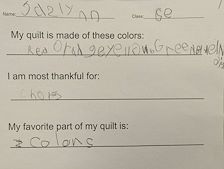 Name: Jdelynn Class: se
My quilt is made of these colors:
Red Orange yellow Green
I am most thankful for:
My favorite part of my quilt is:
colons